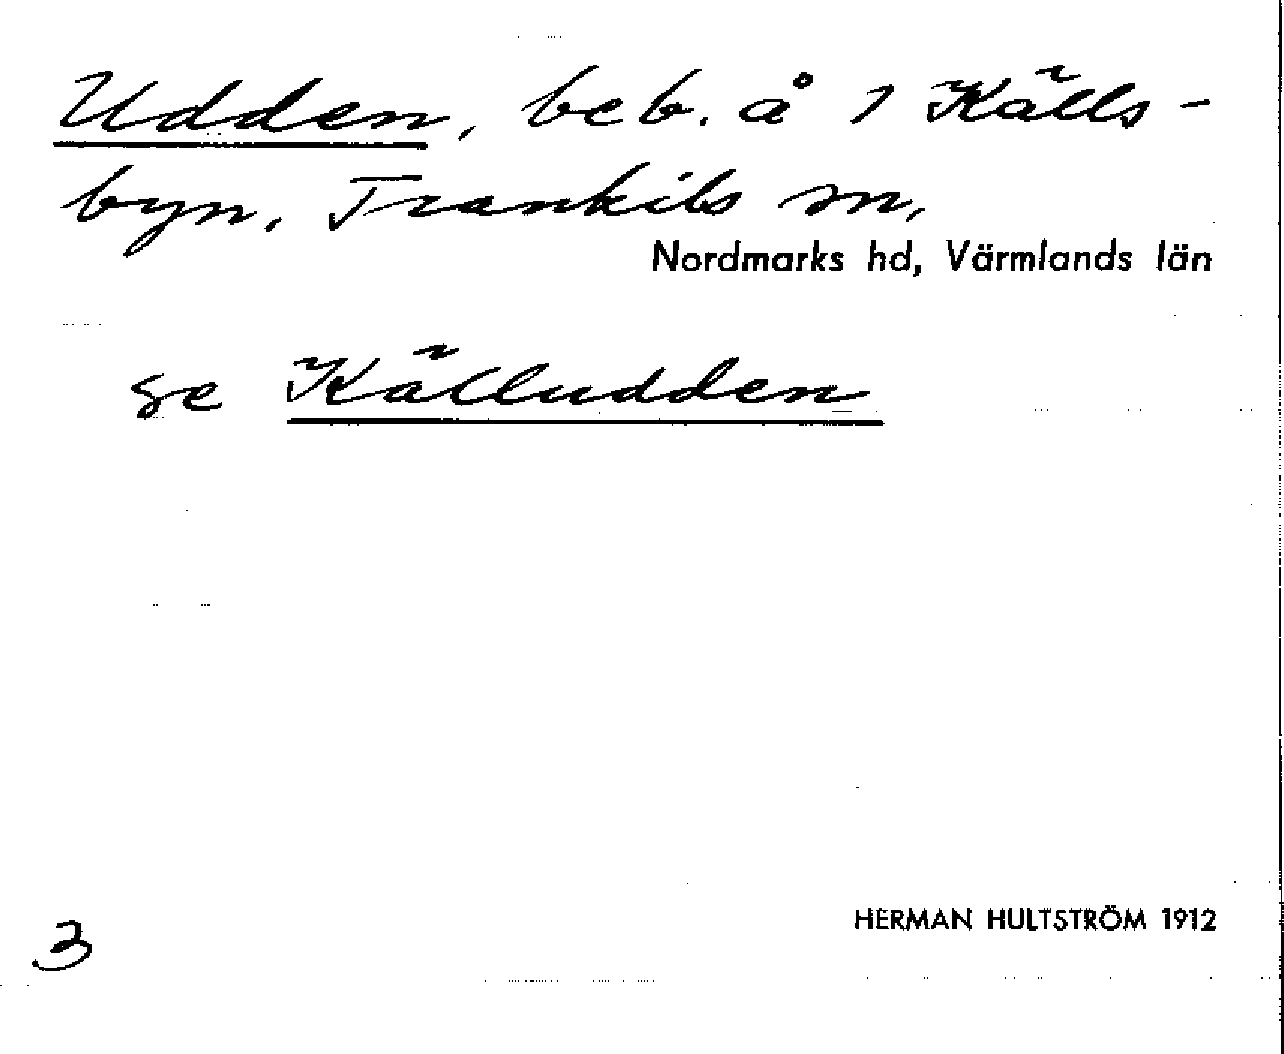 Udden, beb. å 1 Källs-
byn, Trankils sn,
Nordmarks hd, Värmlands län
se Källudden
HERMAN HULTSTRÖM 1912
3